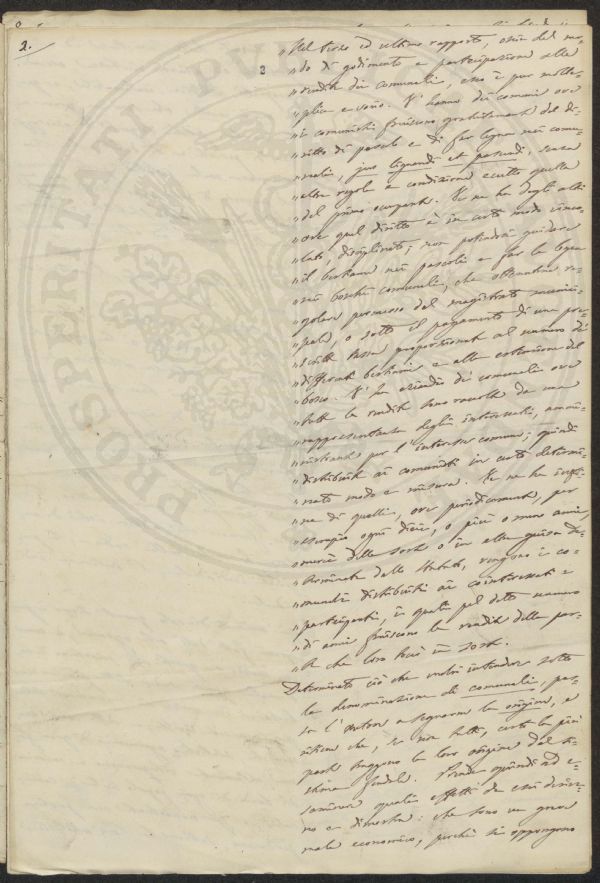 2.
2
„ Nel terzo ed ultimo rapporto, ossia del mo-
„ do di godimento e partecipazione alle
„ rendite dei comunali, esso è pur molte-
„ plice e vario. V'hanno dei comuni ove
„ i comunisti fruiscono gratuitamente del di-
„ ritto di pascolo e di far legna nei comu-
„ nali, jus lignandi et pascendi, senza
„ altre regole e condizione eccetto quella
„ del primo occupante. Ve ne ha degli altri
„ ove quel diritto è in certo modo vinco-
„ lato, disciplinato; non potendosi guidare
„ il bestiame nei pascoli e far la legna
„ nei boschi comunali, che ottenutone re-
„ golare permesso dal magistrato munici-
„ pale, o sotto il pagamento di una pre-
„ scritta tassa proporzionata al numero dei
„ differenti bestiami e alla estensione del
„ bosco. V'ha eziandio dei comunali ove
„ tutte le rendite sono raccolte da una
„ rappresentanza degli interessati, ammi-
„ nistrate per l'interesse comune; quindi
„ distribuite ai comunisti in certo determi-
„ nato modo e misura. Ve ne ha infi-
„ ne di quelli, ove periodicamente, per
„ esempio ogni dieci, o più o meno anni,
„ mercè della sorte o in altra guisa de-
„ terminata dallo Statuto, vengono i co-
„ munali distribuiti ai cointeressati e
„ partecipanti, i quali pel detto numero
„ di anni fruiscono le rendite della par-
„ te che loro toccò in sorte.
Determinato ciò che vuolsi intender sotto
la denominazione di comunali, pas-
sa l'autore a segnarne la origine, e
ritiene che, se non tutti, certo la più
parte traggono la loro origine dal si-
stema feudale. Prende quindi ad e-
saminare quali effetti da essi deriva-
no e dimostra: che sono un grave
male economico, perchè si oppongono